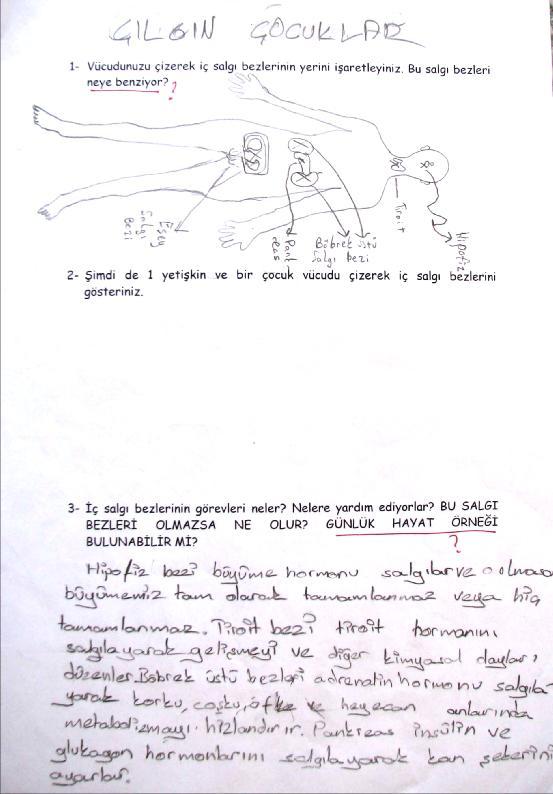 ÇILGIN ÇOCUKLAR
1- Vücudunuzu çizerek iç salgı bezlerinin yerini işaretleyiniz. Bu salgı bezleri
neye benziyor? ?
Eşey
Salgı
Bezi
Pank
reas
Böbrek üstü
Salgı bezi
Tiroit
Hipofiz
2- Şimdi de 1 yetişkin ve bir çocuk vücudu çizerek iç salgı bezlerini
gösteriniz.
3- İç salgı bezlerinin görevleri neler? Nelere yardım ediyorlar? BU SALGI
BEZLERİ OLMAZSA NE OLUR? GÜNLÜK HAYAT ÖRNEĞİ
BULUNABİLİR Mİ? ?
Hipofiz bezi büyüme hormonu salgılar ve o olmasa
büyümemiz tam olarak tamamlanmaz veya hiç
tamamlanmaz. Tiroit bezi tiroit hormanını
salgılayarak gelişmeyi ve diğer kimyasal olayları
düzenler. Böbrek üstü bezleri adrenalin hormonu salgıla-
yarak korku, coşku, öfke ve heyecan anlarında
metabolizmayı hızlandırır. Pankreas insülin ve
glukagon hormonlarını salgılayarak kan şekerini
ayarlar.